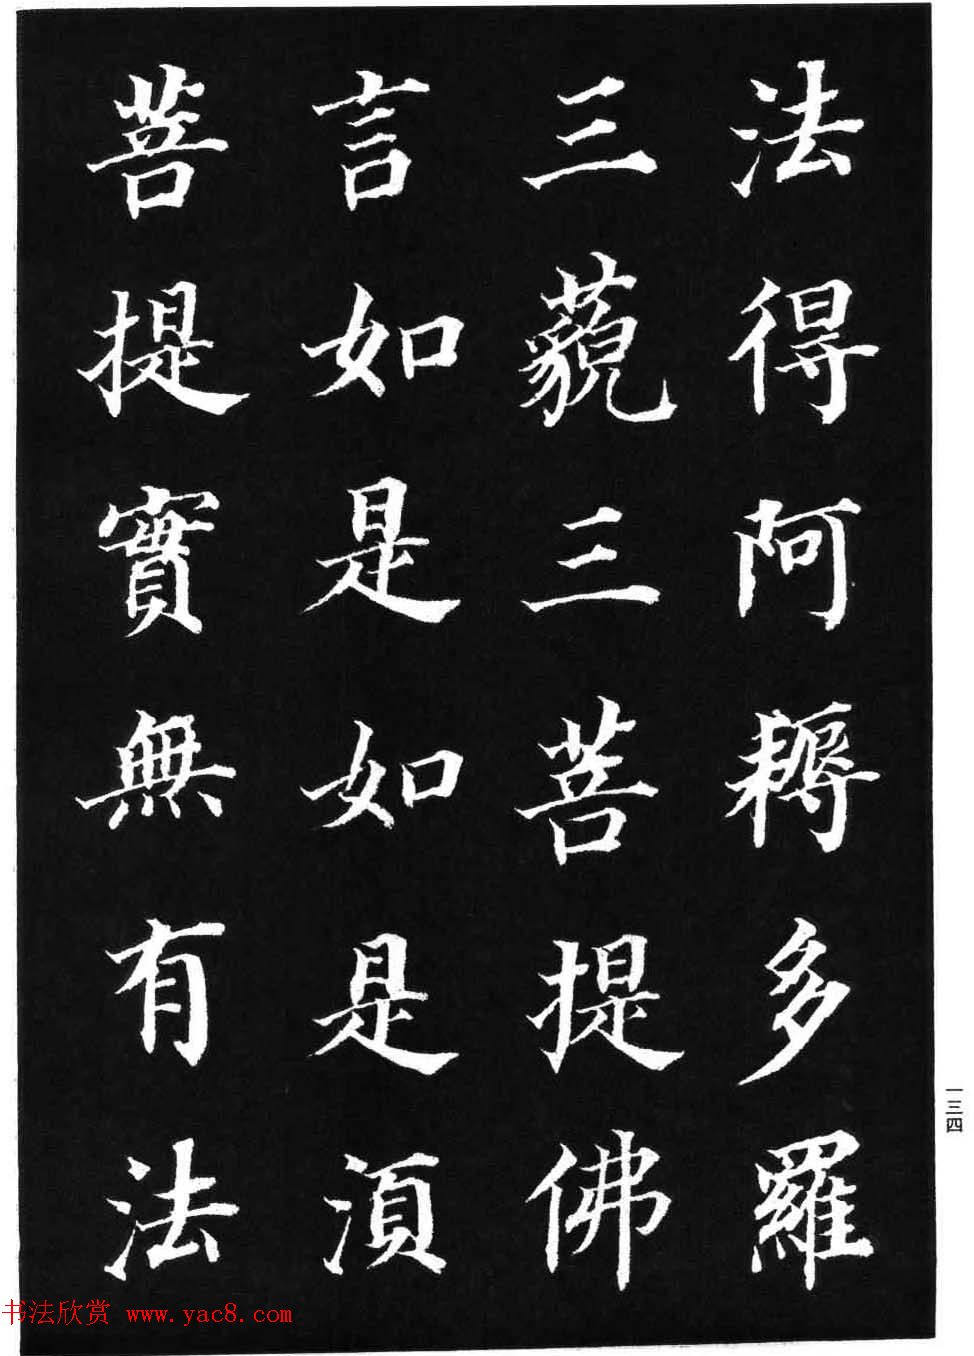 法得阿耨多羅
三藐三菩提佛
言如是如是須
菩提實無有法
一三四
书法欣赏 www.yac8.com